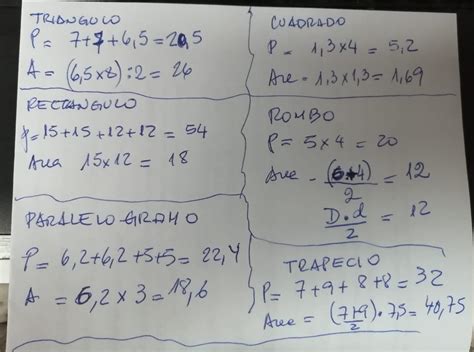 TRIANGULO
P = 7+7+6,5 = 20,5
A = (6,5×8):2 = 26
RECTANGULO
P = 15+15+12+12 = 54
Area 15×12 = 18
PARALELO-GRAMO
P = 6,2+6,2+5+5 = 22,4
A = 6,2 × 3 = 18,6
CUADRADO
P = 1,3×4 = 5,2
Are = 1,3×1,3 = 1,69
ROMBO
P = 5×4 = 20
Are - (6·4)/2 = 12
D·d/2 = 12
TRAPECIO
P = 7+9+8+8 = 32
Are = (7+9/2)·7,5 = 40,75